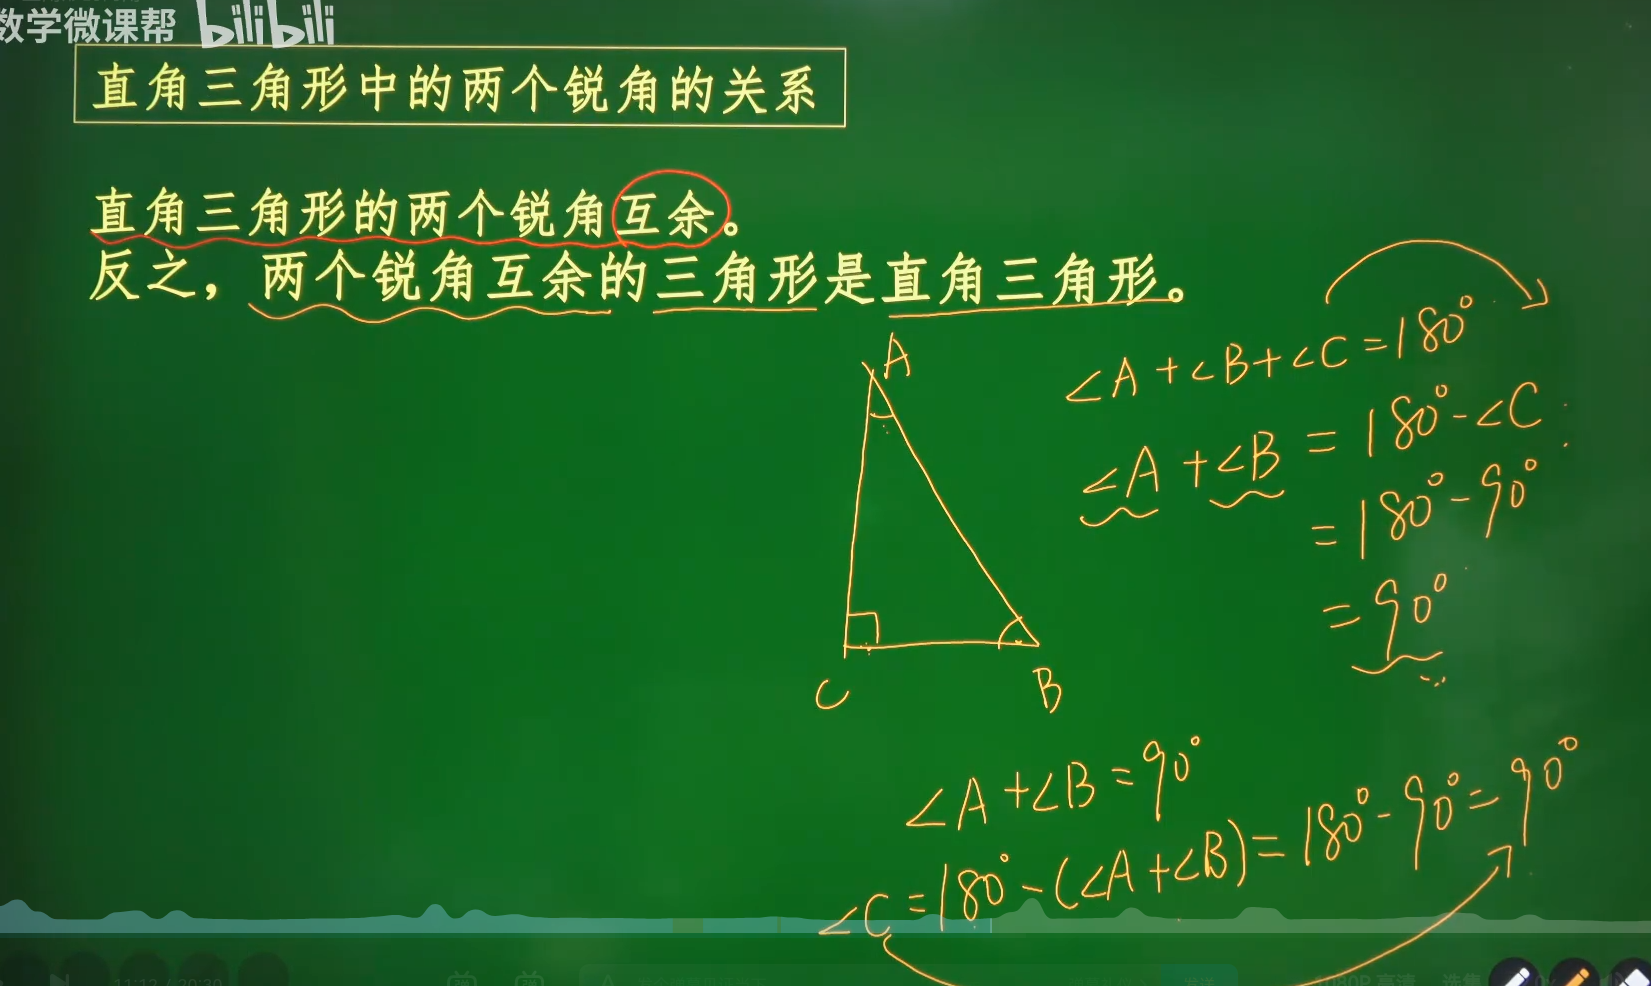 数学微课帮 bilibili
直角三角形中的两个锐角的关系
直角三角形的两个锐角互余。
反之，两个锐角互余的三角形是直角三角形。
A
C
B
∠A+∠B+∠C=180°
∠A+∠B=180°-∠C
=180°-90°
=90°
∠A+∠B=90°
∠C=180°-(∠A+∠B)=180°-90°=90°
11:12 / 20:30
1080P 高清 选集